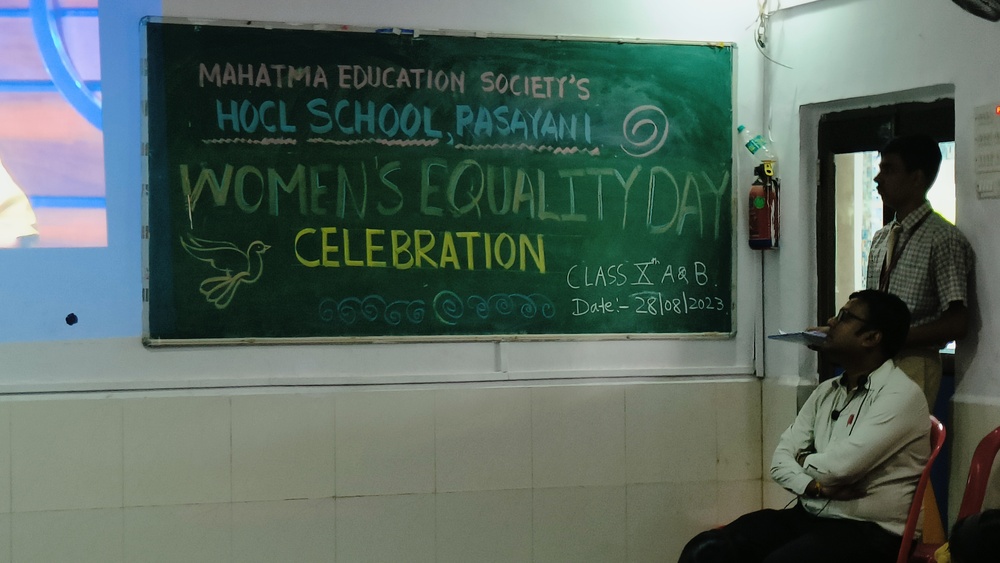 MAHATMA EDUCATION SOCIETY'S
HOCL SCHOOL, RASAYANI
WOMEN'S EQUALITY DAY
CELEBRATION
CLASS Xth A & B.
Date:- 28/08/2023.